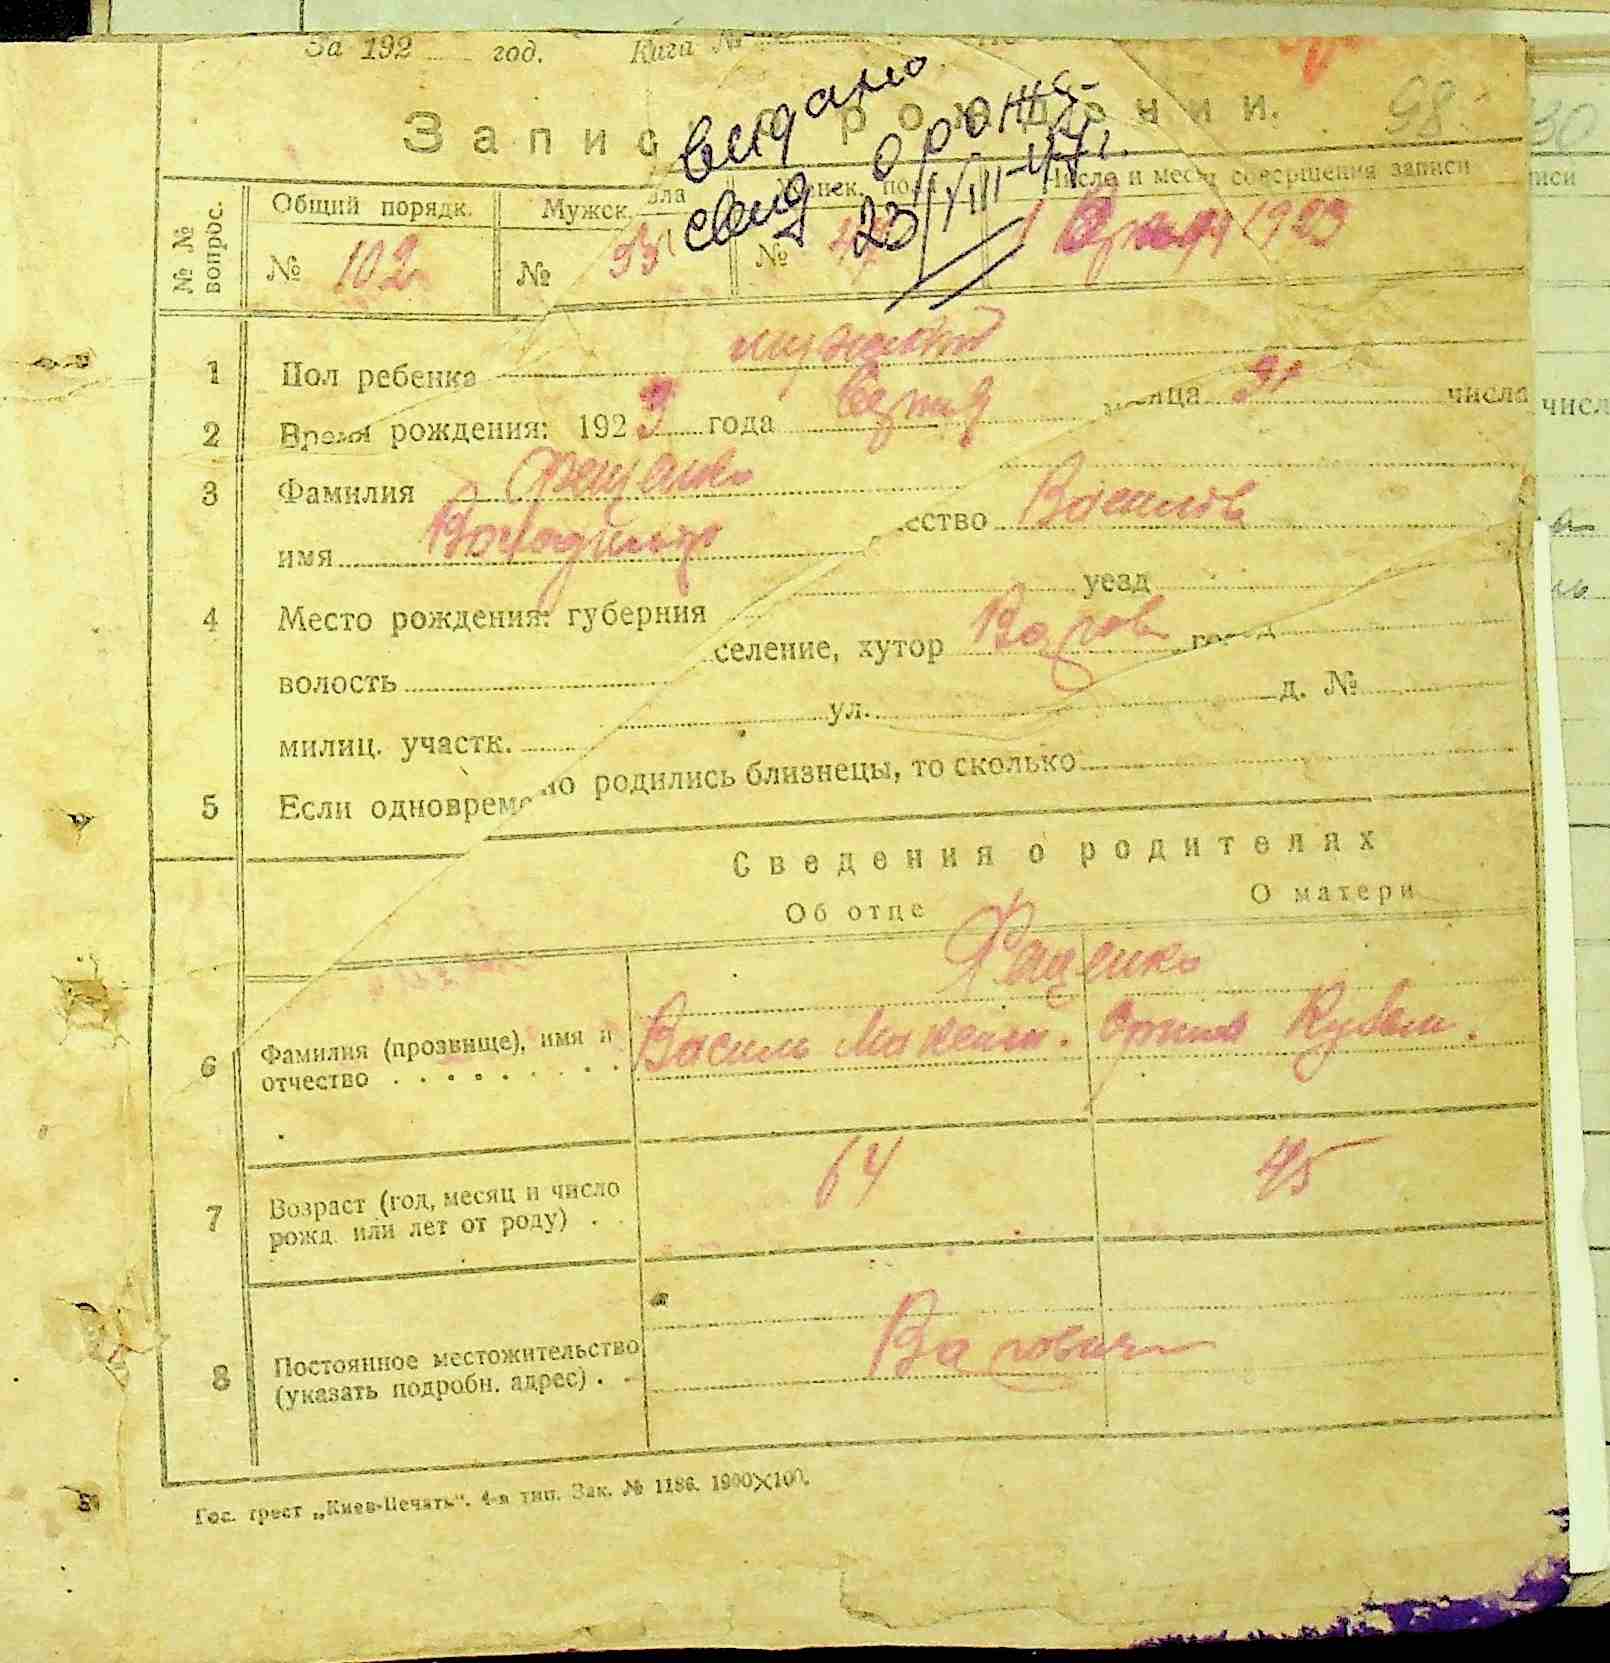 За 192 год. Кига №
Запис рождении.
видано
свид о рожд.
23/VIII-47
98
30
№ № вопрос.
Общий порядк. Мужск. Женск. пола Число и место совершения записи
№ 102 № 53 № 1923
1 Пол ребенка
2 Время рождения: 1923 года месяца 31 числа
3 Фамилия Фещенко
имя Володимир ество Васильов
4 Место рождения: губерния уезд
волость селение, хутор город
милиц. участк. ул. д. №
5 Если одноврем но родились близнецы, то сколько
Сведения о родителях
Об отце О матери
Фещенко
6 Фамилия (прозвище), имя и Василь Орина
отчество
7 Возраст (год, месяц и число 64 45
рожд. или лет от роду)
8 Постоянное местожительство
(указать подробн. адрес)
Гос. трест „Киев-Печать“. 4-я тип. Зак. № 1186. 1900×100.